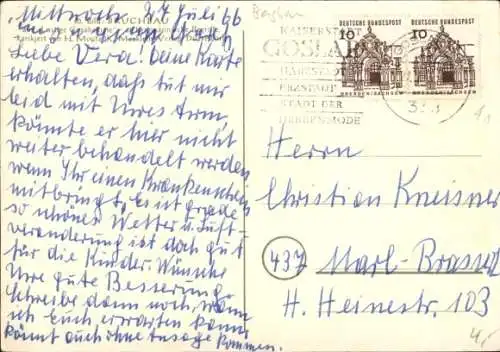 Mittwoch, 27 Juli 66
Liebe Vera! Deine Karte
erhalten, dass tut mir
leid mit Uwes Arm,
könnte er hier nicht
weiter behandelt werden
wenn Ihr einen Krankenschein
mitbringt. Es ist grade
so schönes Wetter u. Luft-
veränderung ist doch gut
für die Kinder. Wünsche
Uwe gute Besserung.
Schreibe dann noch, wann
ich Euch erwarten kann
könnt auch ohne Ansage kommen.
KAISERSTADT
GOSLAR
HANSESTADT
ERZSTADT
STADT DER
HERRENMODE
DEUTSCHE BUNDESPOST
10
DRESDEN/SACHSEN
DEUTSCHE BUNDESPOST
10
DRESDEN/SACHSEN
Herrn
Christian Kneisner
437 Marl-Brassert
H. Heinestr. 103